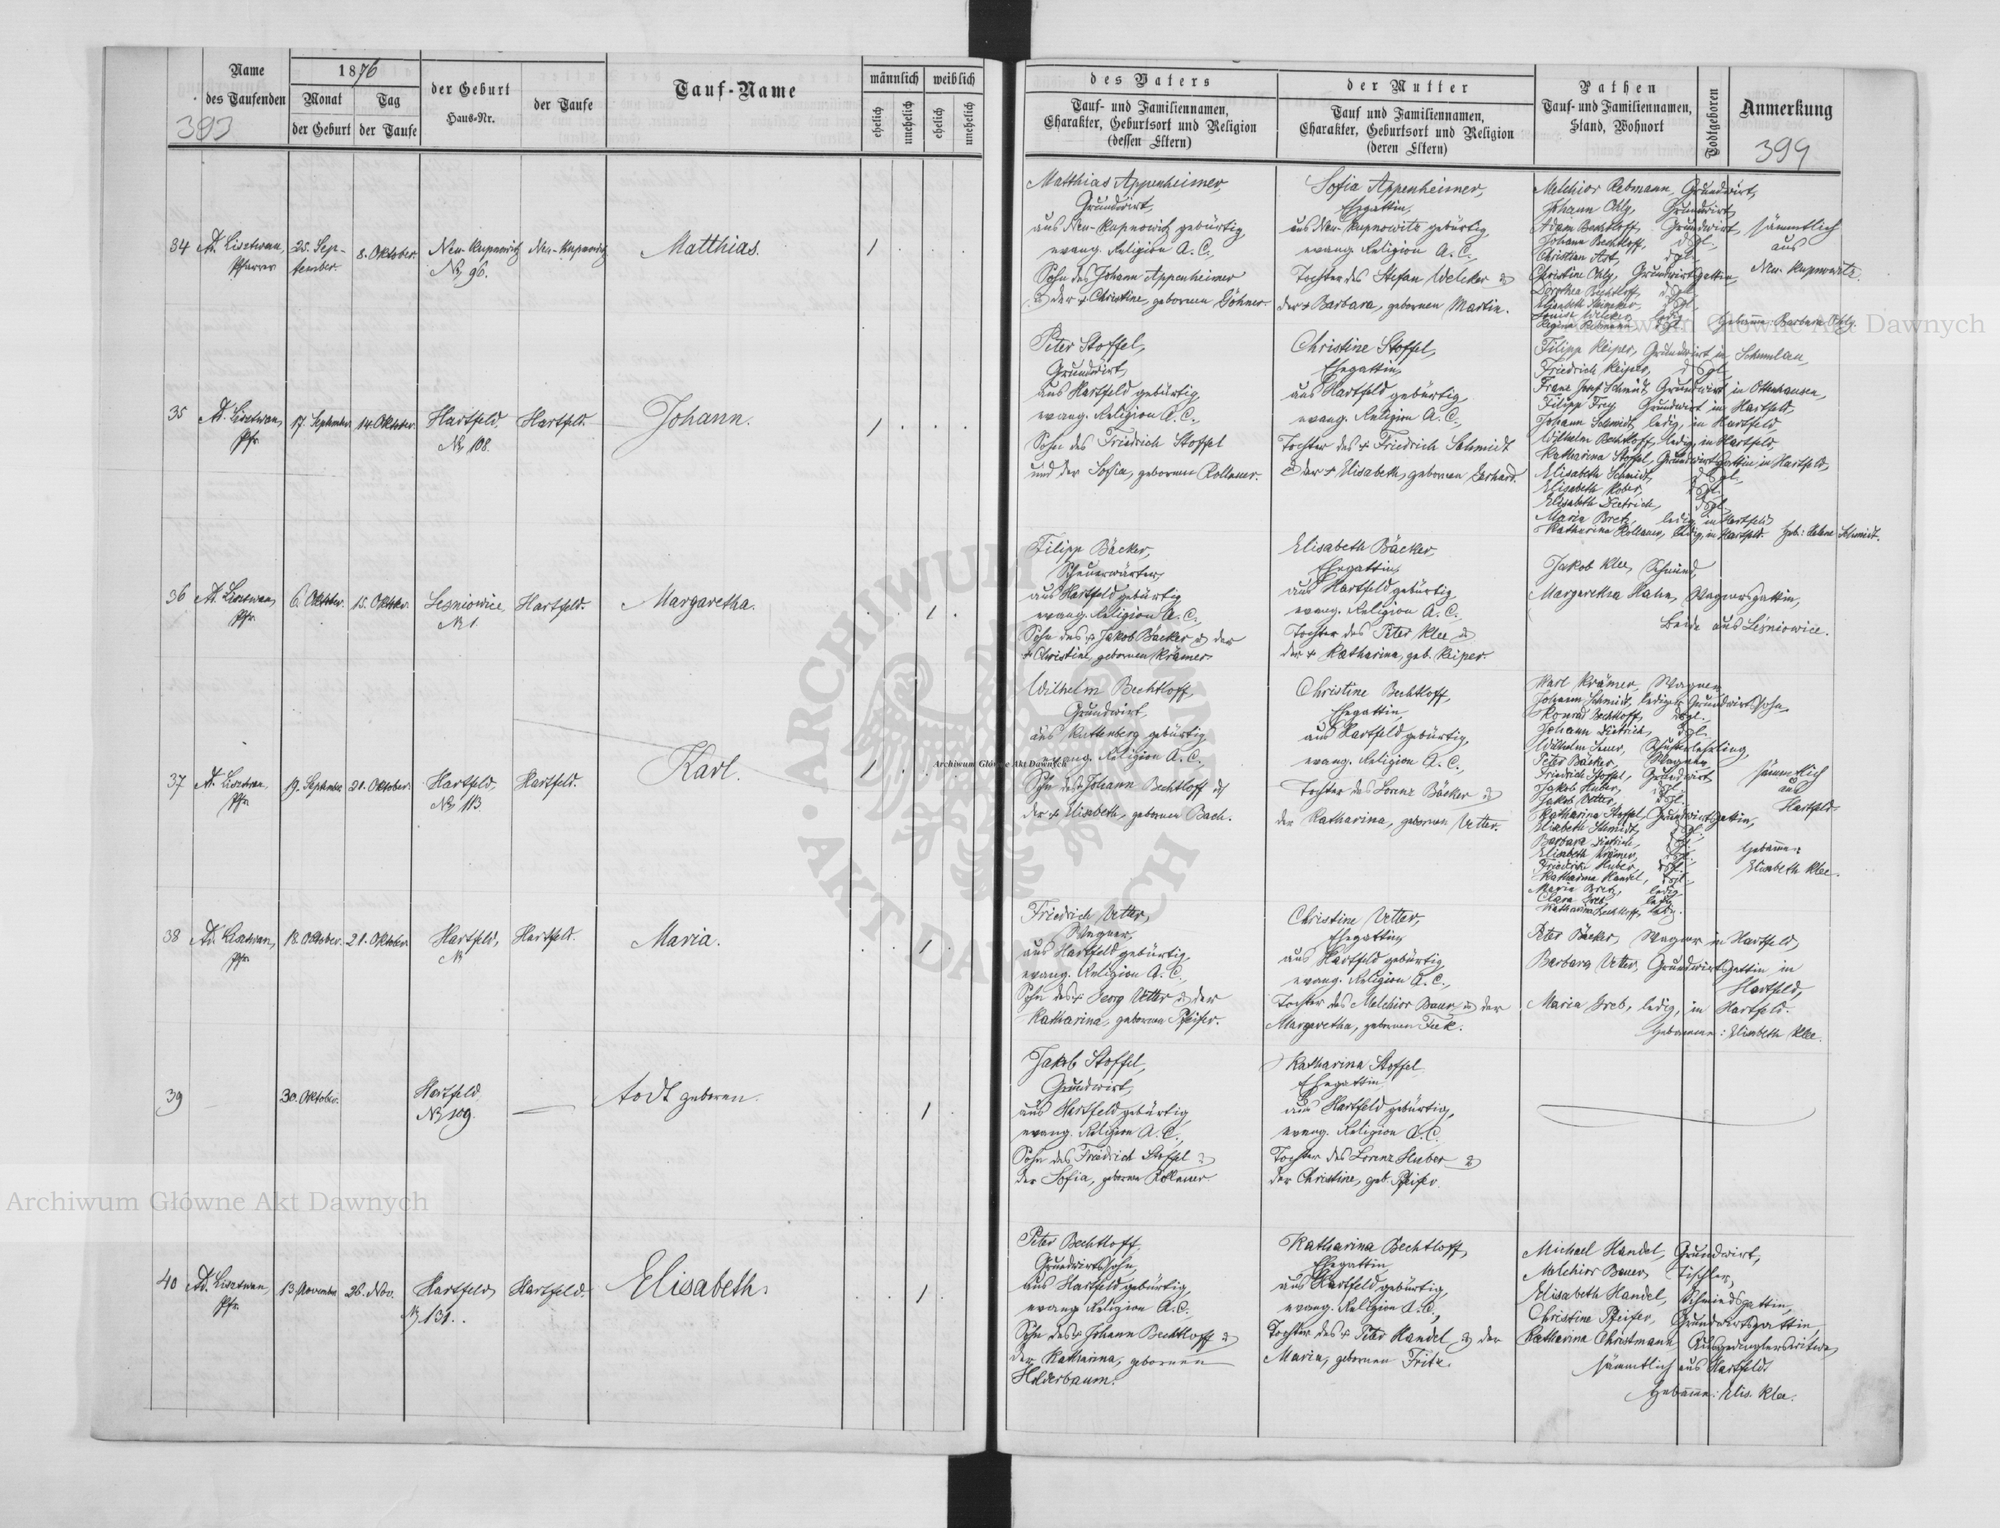 Name
des Taufenden
393
1876
Monat
Tag
der Geburt
der Taufe
der Geburt
Haus-Nr.
der Taufe
Tauf-Name
männlich
weiblich
ehelich
unehelich
ehelich
unehelich
des Vaters
Tauf- und Familiennamen,
Charakter, Geburtsort und Religion
(dessen Eltern)
der Mutter
Tauf und Familiennamen,
Charakter, Geburtsort und Religion
(deren Eltern)
Pathen
Tauf- und Familiennamen,
Stand, Wohnort
Todtgeboren
Anmerkung
394
34
Pfarrer
25. Sep-
tember.
8. Oktober.
Neu-Kupnowitz
№ 96.
Neu-Kupnowitz
Matthias.
1
Matthias Appenheimer,
Grundwirt,
aus Neu-Kupnowitz gebürtig,
evang. Religion A. C.,
Sohn des Johann Appenheimer
& der + Christine, gebornen Göhner.
Sofia Appenheimer,
Ehegattin,
aus Neu-Kupnowitz gebürtig,
evang. Religion A. C.,
Tochter des Stefan Welcker &
der + Barbara, gebornen Martin.
Melchior Rebmann, Grundwirt,
Johann Ohly, Grundwirt,
Adam Bechtloff, Grundwirt,
Johann Bechtloff, dgl.
Christian Art, dgl.
Christine Ohly, Grundwirtsgattin,
Dorothea Bechtloff, dgl.
Elisabeth dgl.
Louise Welcker, ledig
Regina Rebmann dgl.
sämmtlich
aus
Neu-Kupnowitz.
Hebamme: Barbara Ohly.
35
Pfr.
17. September
14. Oktober.
Hartfeld.
№ 108.
Hartfeld.
Johann.
1
Peter Stoffel,
Grundwirt,
aus Hartfeld gebürtig,
evang. Religion A. C.,
Sohn des Friedrich Stoffel
und der Sofia, gebornen Kollauer.
Christine Stoffel,
Ehegattin,
aus Hartfeld gebürtig,
evang. Religion A. C.,
Tochter des + Friedrich Schmidt
& der + Elisabeth, gebornen Gerhard.
Filipp Keiper, Grundwirt in
Friedrich Keiper, dgl.
Franz Josef Schmidt, Grundwirt in Ottenhausen,
Filipp Frey Grundwirt in Hartfeld,
Johann Schmidt, ledig, in Hartfeld
Wilhelm Bechtloff, ledig, in Hartfeld,
Katharina Stoffel, Grundwirtsgattin in Hartfeld,
Elisabeth Schmidt, dgl.
Elisabeth Huber, dgl.
Elisabeth Dietrich, dgl.
Maria Bretz, ledig, in Hartfeld
Katharina Kollauer, ledig, in Hartfeld. Heb: Schmidt.
36
Pfr.
6. Oktober.
15. Oktober.
Leśniowice
№ 1.
Hartfeld.
Margaretha.
1
Filipp Bäcker,
Scheuerwärter,
aus Hartfeld gebürtig,
evang. Religion A. C.,
Sohn des + Jakob Bäcker & der
+ Christine, gebornen Krämer.
Elisabeth Bäcker,
Ehegattin,
aus Hartfeld gebürtig,
evang. Religion A. C.,
Tochter des Peter Klee &
der + Katharina, geb. Keiper.
Jakob Klee, Schmied,
Margaretha Hahn, Wagnersgattin,
Beide aus Leśniowice.
37
Pfr.
19. September
21. Oktober.
Hartfeld,
№ 113
Hartfeld.
Karl.
1
Wilhelm Bechtloff,
Grundwirt,
aus Kuttenberg gebürtig,
evang. Religion A. C.,
Sohn des + Johann Bechtloff &
der + Elisabeth, gebornen Bach.
Christine Bechtloff,
Ehegattin,
aus Hartfeld gebürtig,
evang. Religion A. C.,
Tochter des Lorenz Bäcker &
der Katharina, gebornen Vetter.
Karl Krämer, Wagner,
Johann Schmidt, lediger Grundwirtssohn,
Konrad Bechtloff, dgl.
Johann Dietrich, dgl.
Wilhelm
Peter Bäcker, Wagner,
Friedrich Stoffel, Grundwirt
Jakob Huber, dgl.
Jakob Vetter, dgl.
Katharina Stoffel, Grundwirtsgattin,
Elisabeth Schmidt, dgl.
Barbara Dietrich, dgl.
Elisabeth Krämer, dgl.
Huber, dgl.
Katharina Handel, dgl.
Maria Bretz, ledig
Clara ledig
Katharina Bechtloff, ledig.
sämmtlich
aus
Hartfeld.
Hebamme:
Elisabeth Klee.
38
Pfr.
18. Oktober.
21. Oktober.
Hartfeld,
№
Hartfeld.
Maria.
1
Friedrich Vetter,
Wagner,
aus Hartfeld gebürtig,
evang. Religion A. C.,
Sohn des + Georg Vetter & der
Katharina, gebornen Pfeifer.
Christine Vetter,
Ehegattin,
aus Hartfeld gebürtig,
evang. Religion A. C.,
Tochter des Melchior Bauer & der
Margaretha, gebornen
Peter Bäcker, Wagner in Hartfeld,
Barbara Vetter, Grundwirtsgattin in
Hartfeld,
Maria ledig, in Hartfeld.
Hebamme: Elisabeth Klee.
39
30. Oktober.
Hartfeld
№ 109.
todt geboren.
1
Jakob Stoffel,
Grundwirt,
aus Hartfeld gebürtig,
evang. Religion A. C.,
Sohn des Friedrich Stoffel &
der Sofia, gebornen Kollauer.
Katharina Stoffel
Ehegattin
aus Hartfeld gebürtig,
evang. Religion A. C.
Tochter des Lorenz Huber &
der Christine, geb. Pfeifer.
40
Pfr.
13. November
26. Nov.
Hartfeld
№ 131.
Hartfeld.
Elisabeth.
1
Peter Bechtloff,
Grundwirtssohn,
aus Hartfeld gebürtig,
evang. Religion A. C.
Sohn des + Johann Bechtloff &
der Katharina, gebornen
Holderbaum.
Katharina Bechtloff,
Ehegattin
aus Hartfeld gebürtig,
evang. Religion A. C.,
Tochter des + Peter Handel & der
Maria, gebornen Fritz.
Michael Handel, Grundwirt,
Melchior Bauer, Tischler,
Elisabeth Handel, Schmiedsgattin,
Christine Pfeifer, Grundwirtsgattin,
Katharina Christmann, Ausgedingterswitwe,
sämmtlich aus Hartfeld.
Hebamme: Elis. Klee.
Archiwum Główne Akt Dawnych
Archiwum Główne Akt Dawnych
Archiwum Główne Akt Dawnych
ARCHIWUM GŁÓWNE AKT DAWNYCH